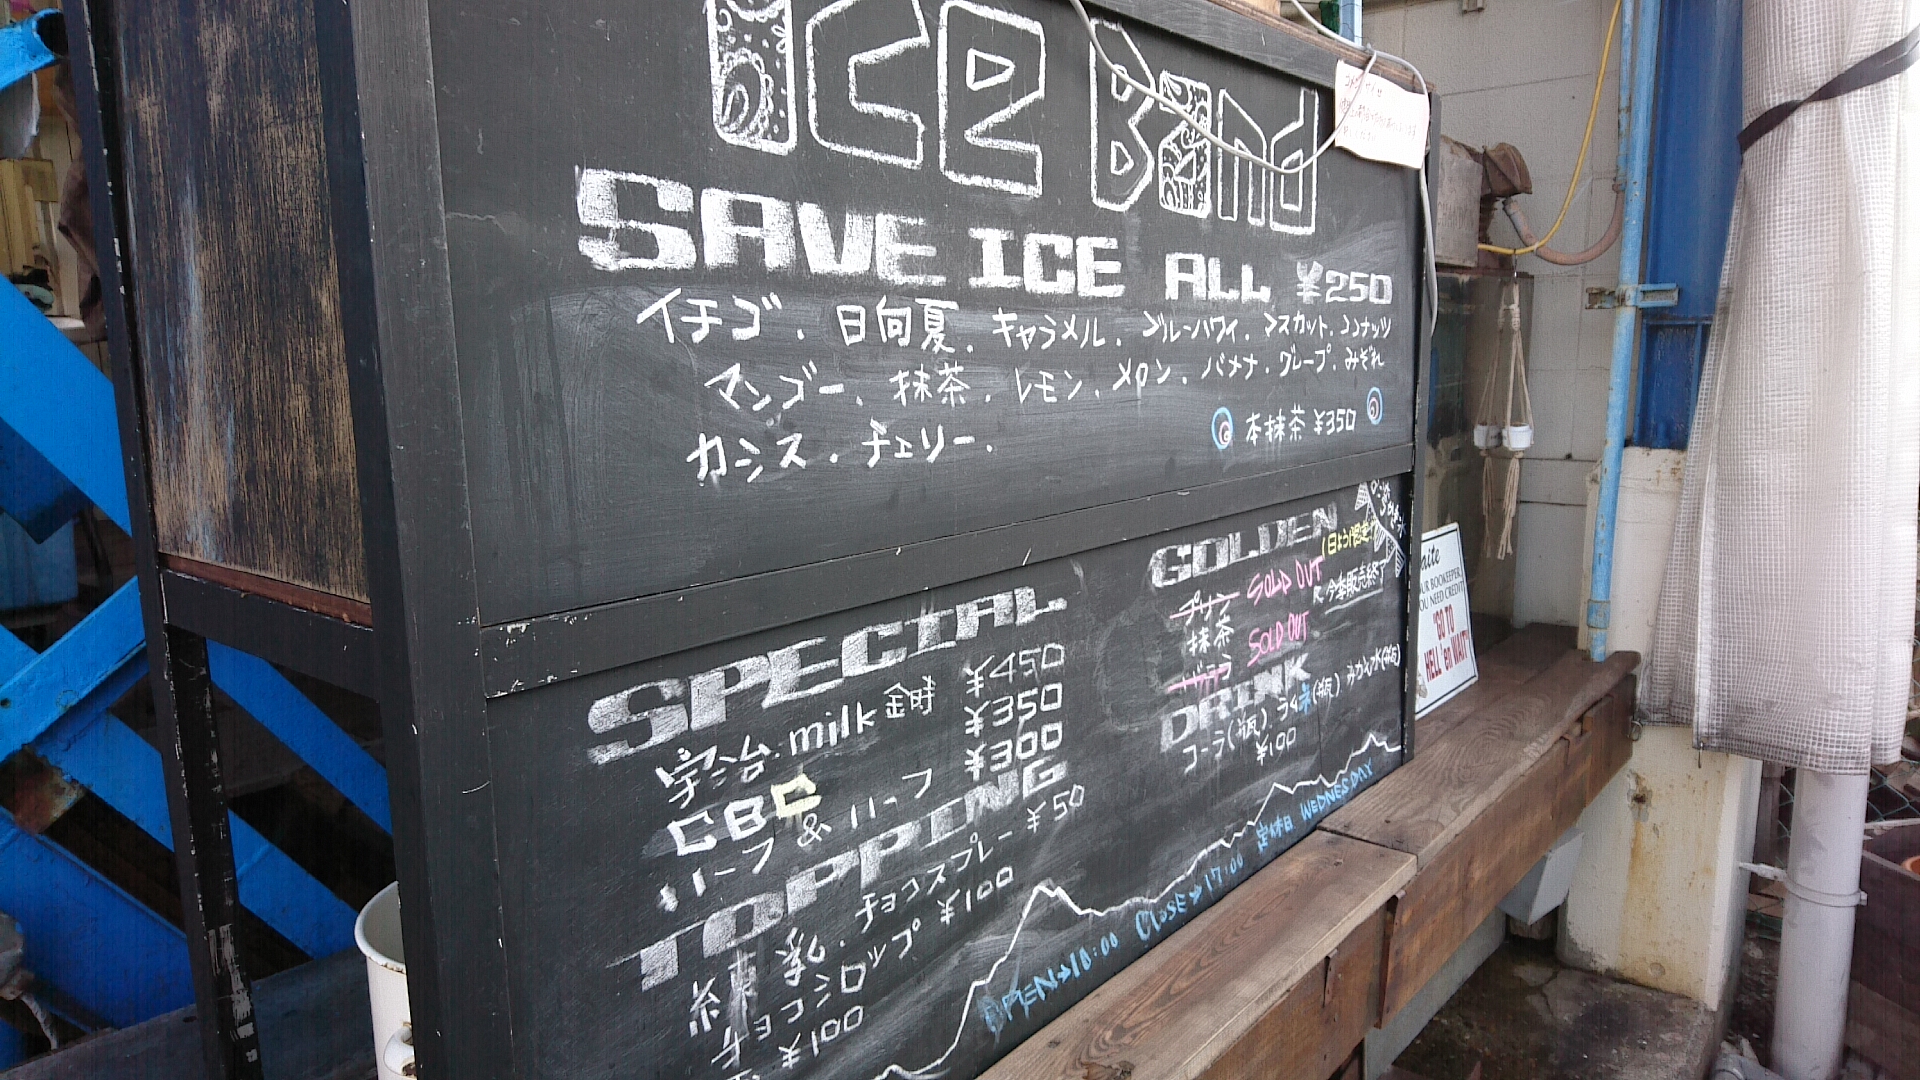 ICE Band
SAVE ICE ALL ¥250
イチゴ. 日向夏. キャラメル. ブルーハワイ. マスカット. ココナッツ
マンゴー. 抹茶. レモン. メロン. バナナ. グレープ. みぞれ
カシス. チェリー.
本抹茶 ¥350
SPECIAL
宇治. milk 金時 ¥450
CBC ¥350
ハーフ & ハーフ ¥300
TOPPING
練乳. チョコスプレー ¥50
チョコシロップ ¥100
¥100
GOLDEN
(日よう限定!)
プリン SOLD OUT
抹茶 SOLD OUT
今季販売終了
DRINK
コーラ(瓶). ラムネ(瓶) みかん水(瓶)
¥100
OPEN→10:00 CLOSE→17:00 定休日 WEDNESDAY
YOU NEED CREDIT
"GO TO
HELL en WAIT"